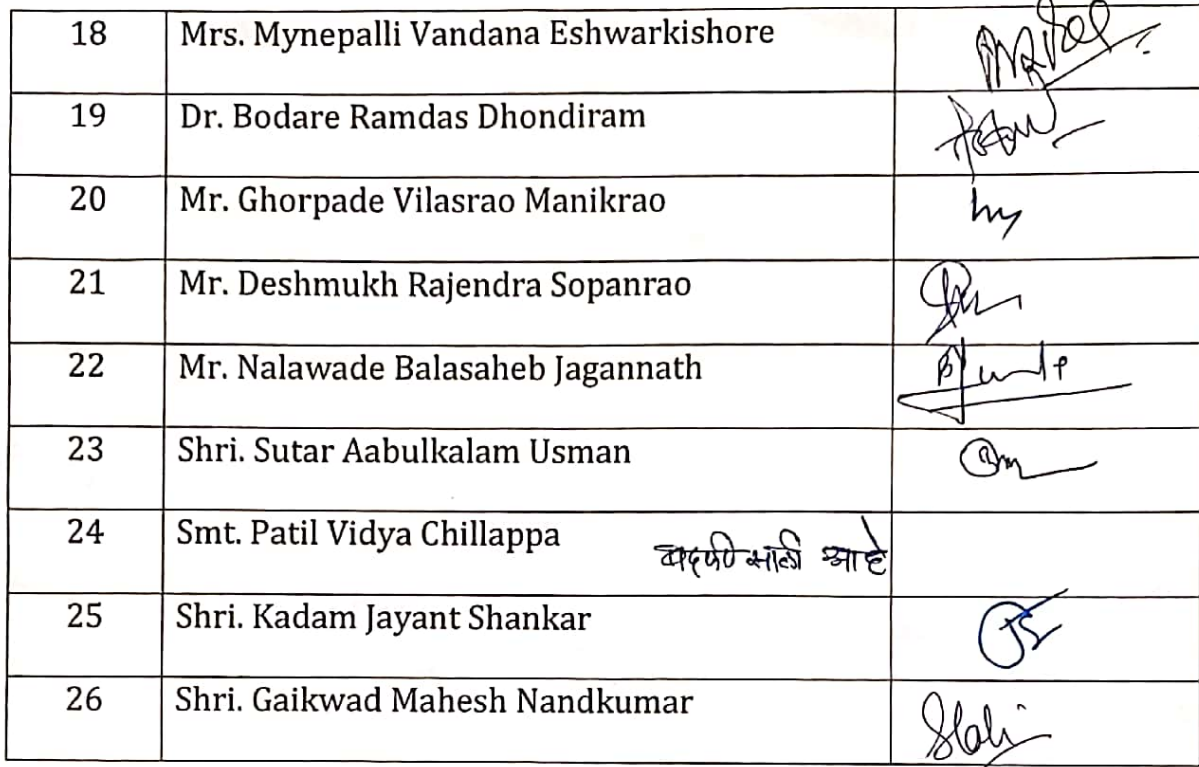 18 Mrs. Mynepalli Vandana Eshwarkishore
19 Dr. Bodare Ramdas Dhondiram
20 Mr. Ghorpade Vilasrao Manikrao
21 Mr. Deshmukh Rajendra Sopanrao
22 Mr. Nalawade Balasaheb Jagannath
23 Shri. Sutar Aabulkalam Usman
24 Smt. Patil Vidya Chillappa बदली झाली आहे
25 Shri. Kadam Jayant Shankar
26 Shri. Gaikwad Mahesh Nandkumar